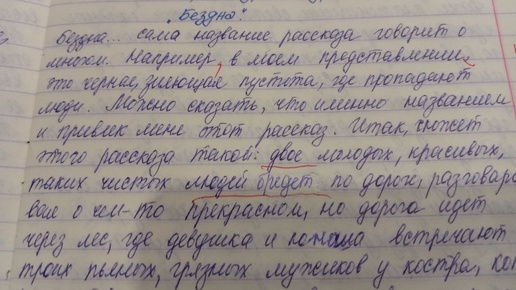 "Бездна"
Бездна... сама название рассказа говорит о
многом. Например, в моем представлении,
это черная, зияющая пустота, где пропадают
люди. Можно сказать, что именно названием
и привлек мене этот рассказ. Итак, сюжет
этого рассказа таков: двое молодых, красивых,
таких чистых людей бредет по дороге, разговари
вая о чем-то прекрасном, но дорога идет
через лес, где девушка и юноша встречают
троих пьяных, грязных мужиков у костра,